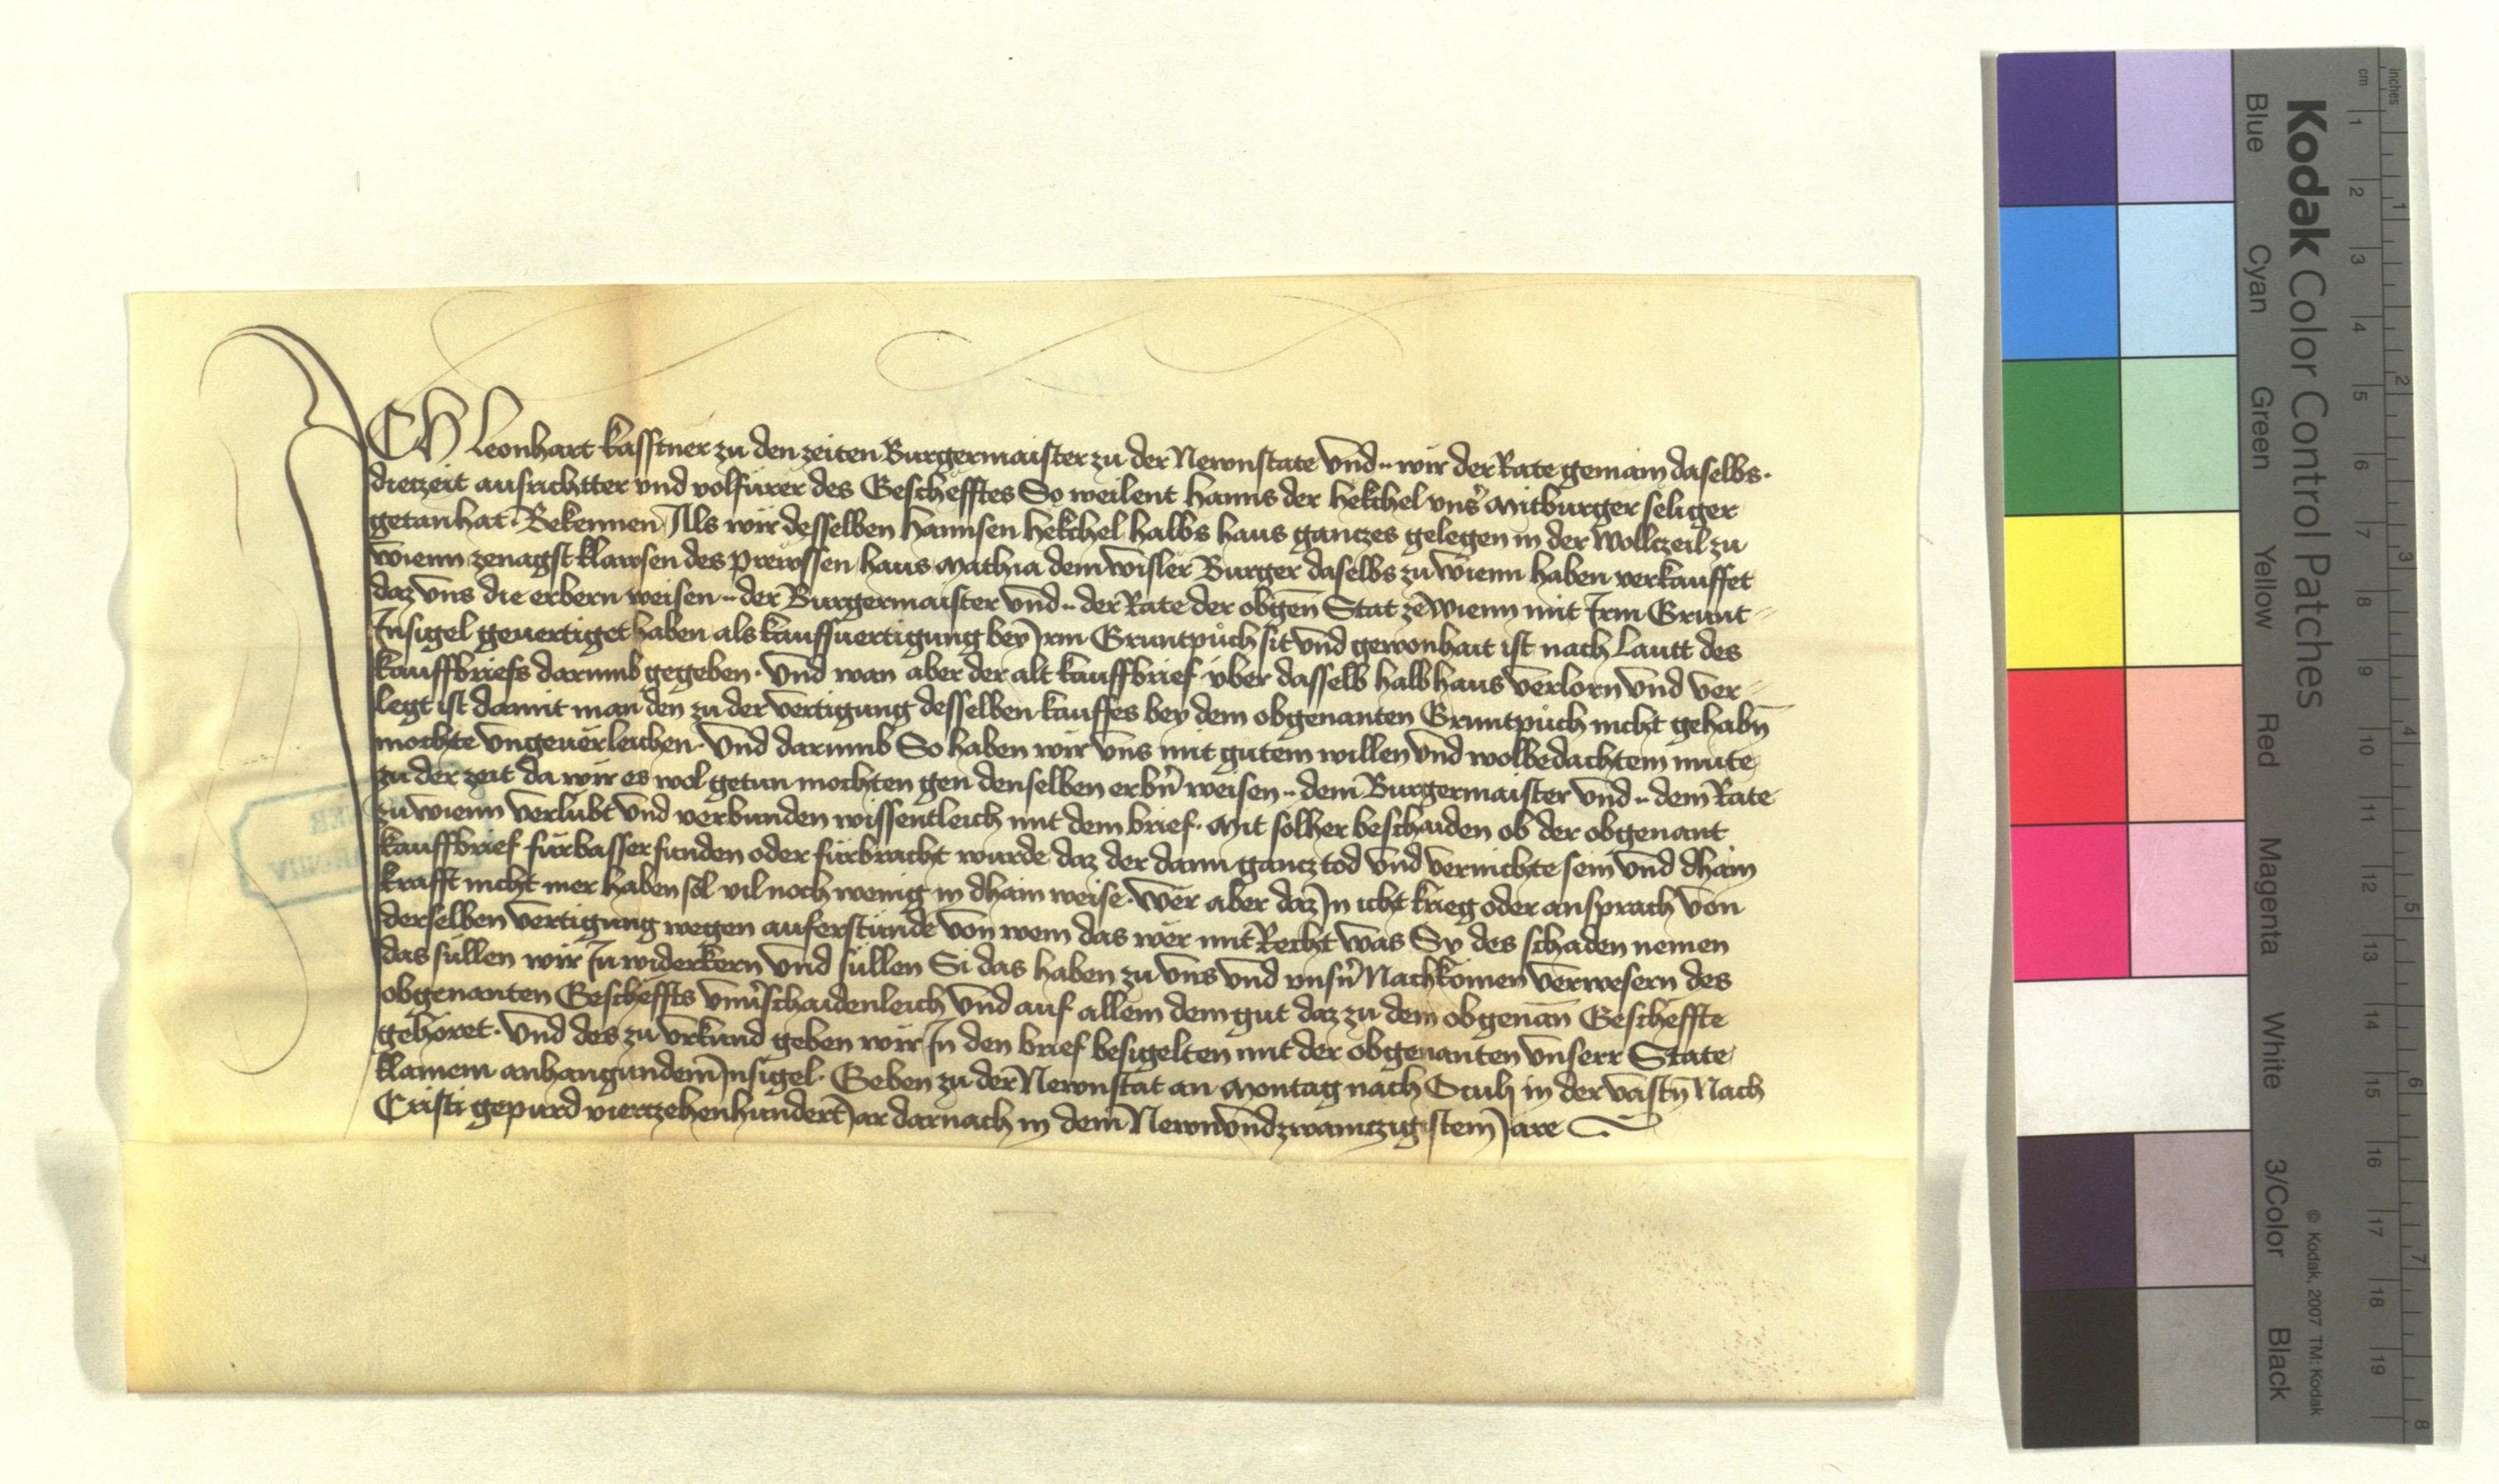 ICH Leonhart kasstner zu den zeiten Burgermaister zu der Newnstate vnd .. wir der Rate gemain daselbs .
dieczeit ausrichtter vnd volfürer des Geschefftes So weilent hanns der hekchel vnsr̄ Mitburger seliger
getan hat . Bekennen Als wir desselben hannsen hekchel halbs haus gancze͏s gelegen in der Wollczeil zu
wienn zenagst klawsen des prewssen haus Mathia dem wisler Burger daselbs zu wienn haben verkauffet
daz vns die erbern weisen .. der Burgermaister vnd .. der Rate der obgen̄ Stat ze wienn mit Irm Grunt=
Insigel geuertiget haben als kauffuertigung bey Irm Gruntpůch sit vnd gewonhait ist nach Lautt des
kauffbriefs darumb gegeben . Vnd wan aber der alt kauffbrief vber dasselb halb haus verlorn vnd ver=
legt ist damit man den zu der vertigung desselben kauffes bey dem obgenanten Gruntpůch nicht gehabn̄
mochte vngeuërleichen . Vnd darumb So haben wir vns mit gutem willen vnd wolbedachtem mute
zu der zeit da wir es wol getun mochten gen denselben erbn̄ weisen .. dem Burgermaister vnd .. dem Rate
zu wienn verlubt vnd verbunden wissentleich mit dem brief . Mit solher beschaiden ob der obgenant
kauffbrief fürbasser funden oder fürbracht wurde daz der dann gancz tod vnd vernichte sein vnd dhain
krafft nicht mer haben sol vil noch wenig in dhain weise . Wër aber daz In icht krieg oder ansprach von
derselben vertigung wegen auferstünde von wem das wër mit Recht was Sy des schaden nemen
das süllen wir In widerkern vnd süllen Si das haben zu vns vnd vnsn̄ Nachkomen verwesern des
obgenanten Gescheffts vnuerschaidenleich vnd auf allem dem gut daz zu dem obgenan̄ Gescheffte
gehöret . Vnd des zu vrkund geben wir In den brief besigelten mit der obgenanten vnserr State
klainem anhangundem Insigel . Geben zu der Newnstat an Montag nach Oculi in der vastn̄ Nach
Cristi gepurd vierczehenhundert Iar darnach in dem Newnvndzwainczigistem Iare
Kodak Color Control Patches
Blue Cyan Green Yellow Red Magenta White 3/Color Black
© Kodak, 2007 TM: Kodak
cm 1 2 3 4 5 6 7 8 9 10 11 12 13 14 15 16 17 18 19
inches 1 2 3 4 5 6 7 8